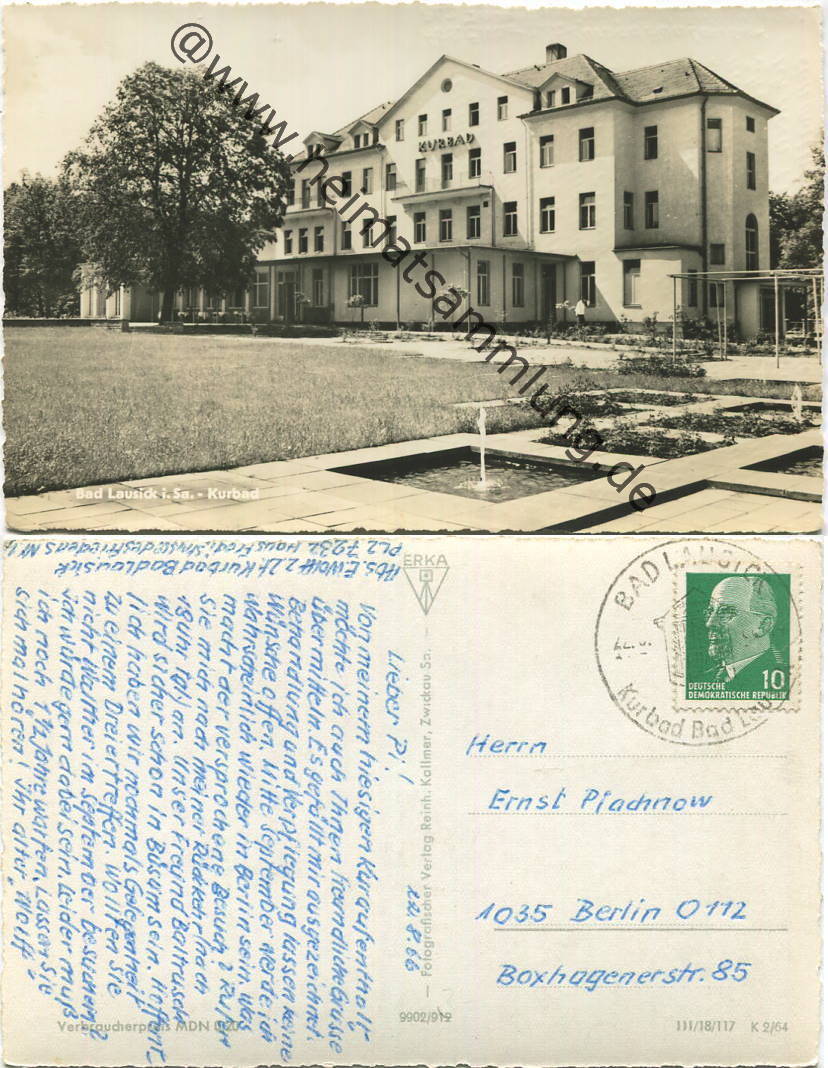 @www.heimatsammlung.de
KURBAD
Bad Lausick i. Sa. - Kurbad
Abs. E. Wolff z. Zt. Kurbad Bad Lausick
PLZ 7232 Haus
ERKA
Lieber Pi!
22.8.66
Von meinem hiesigen Kuraufenthalt
möchte ich auch Ihnen freundliche Grüsse
übermitteln. Es gefällt mir ausgezeichnet.
Behandlung und Verpflegung lassen keine
Wünsche offen. Mitte September werde ich
wahrscheinlich wieder in Berlin sein. Was
macht der versprochene Besuch? Rufen
Sie mich nach meiner Rückkehr nach
18 Uhr mal an. Unser Freund
wird ja schon in Büsum sein. Hoffent-
lich haben wir nochmals Gelegenheit
zu einem Dreiertreffen. Wollen Sie
nicht Walther im September besuchen?
ich würde gern dabei sein. Leider muß
ich noch 1 1/2 Jahre warten. Lassen Sie
sich mal hören! Ihr alter Wolff
Fotografischer Verlag Reinh. Kallmer, Zwickau Sa.
BAD LAUSICK
Kurbad Bad Lau
DEUTSCHE
DEMOKRATISCHE REPUBLIK
10
Herrn
Ernst Plachnow
1035 Berlin O 112
Boxhagenerstr. 85
Verbraucherpreis MDN 0,20
9902/912
III/18/117 K 2/64